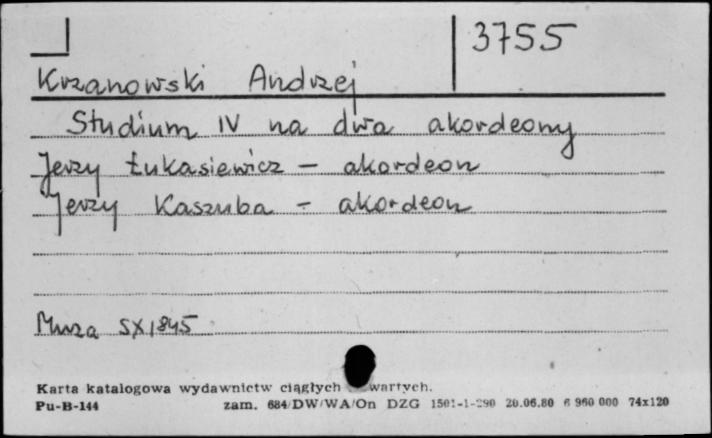 3755
Krzanowski Andrzej
Studium IV na dwa akordeony
Jerzy Łukasiewicz - akordeon
Jerzy Kaszuba - akordeon
Muza SX1845
Karta katalogowa wydawnictw ciągłych wartych.
Pu-B-144 zam. 684/DW/WA/On DZG 1501-1-290 20.06.80 6 960 000 74x120